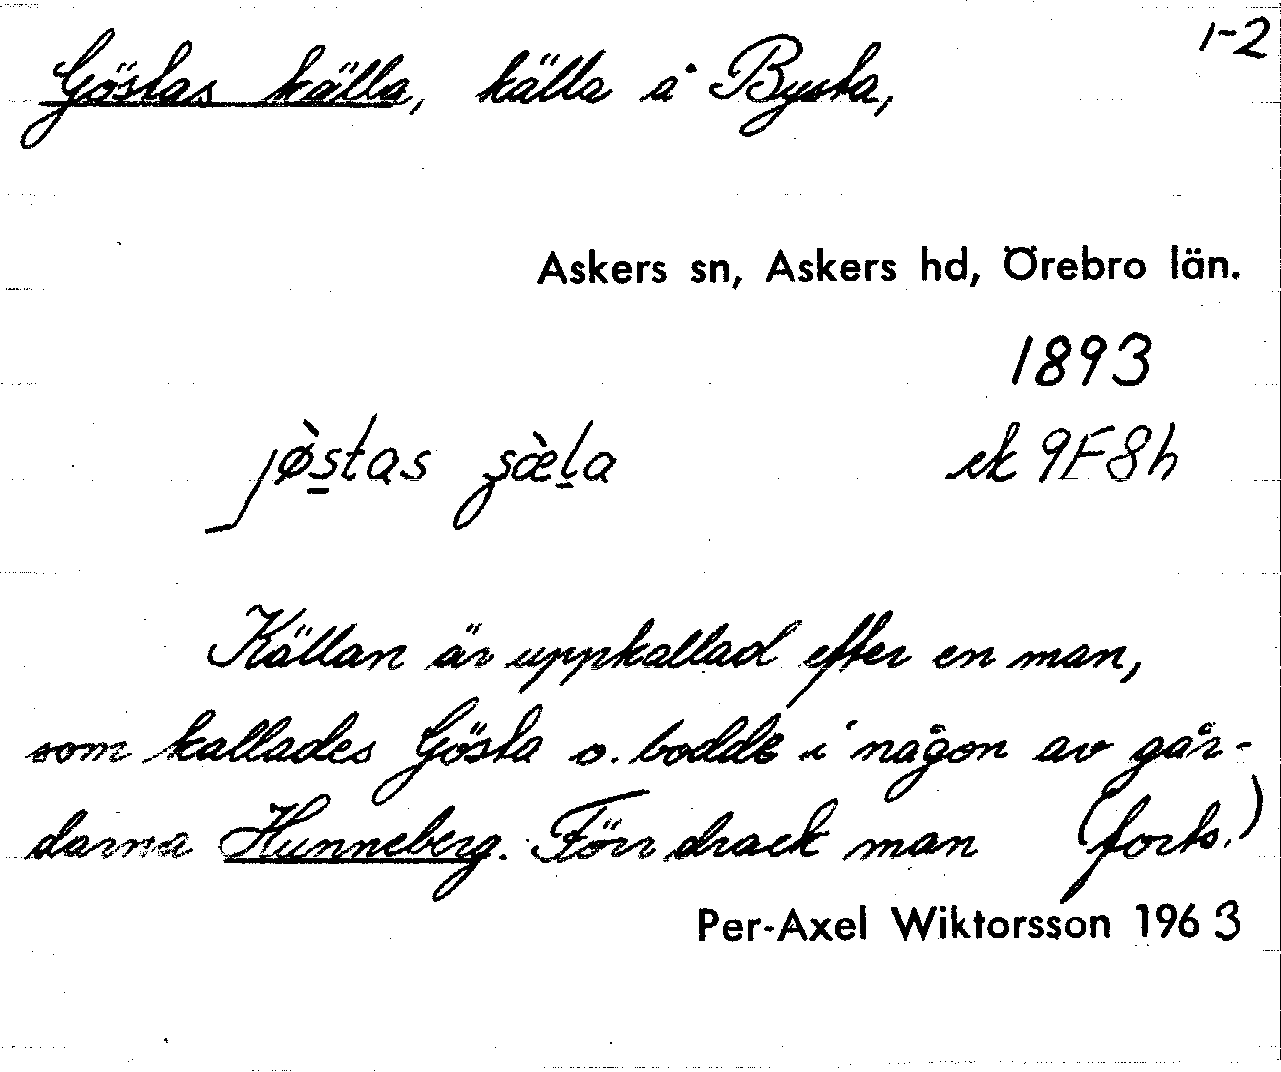 1-2
Göstas källa, källa å Bysta,
Askers sn, Askers hd, Örebro län.
1893
jø̀s̲tas ʂæ̀l̲a ek 9F8h
Källan är uppkallad efter en man,
som kallades Gösta o. bodde i någon av går-
darna Hunneberg. Förr drack man (forts.)
Per-Axel Wiktorsson 1963